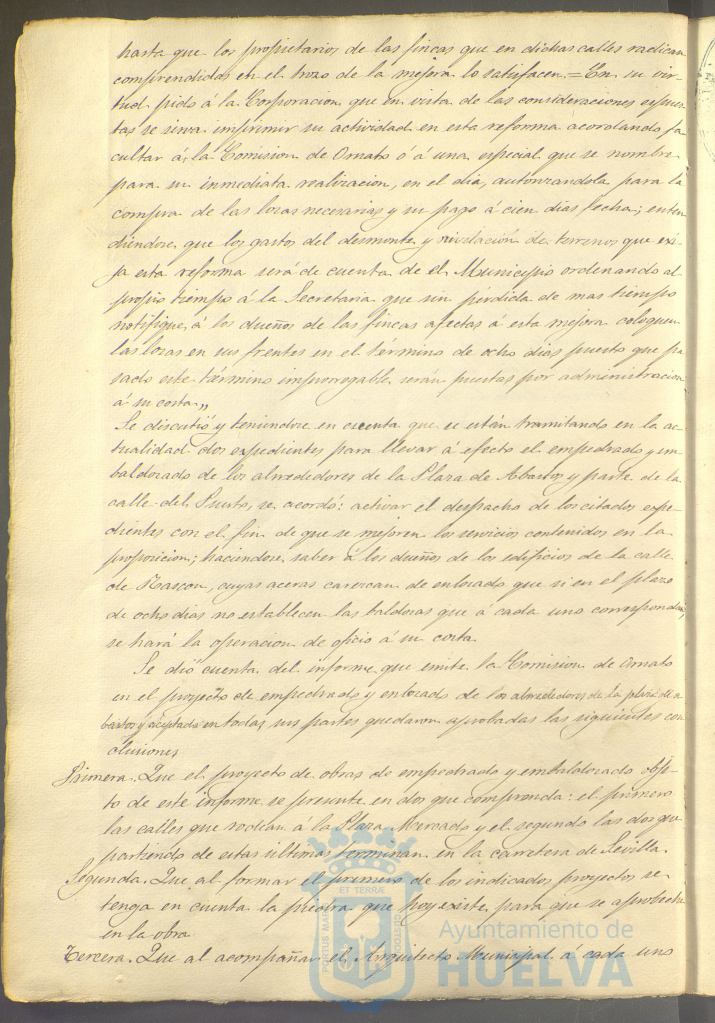 hasta que los propietarios de las fincas que en dichas calles radican
comprendidas en el trozo de la mejora lo satisfacen.=En su vir-
tud pido á la Corporacion que en vista de las consideraciones espues-
tas se sirva imprimir su actividad en esta reforma acordando fa
cultar á la Comision de Ornato ó á una especial que se nombre
para su inmediata realizacion, en el dia, autorizandola para la
compra de las losas necesarias y su pago á cien dias fecha; enten
diendose que los gastos del desmonte y nivelación de terrenos que exi-
ja esta reforma será de cuenta de el Municipio ordenando al
propio tiempo á la Secretaria que sin pérdida de mas tiempo
notifique á los dueños de las fincas afectas á esta mejora coloquen
las losas en sus frentes en el término de ocho dias puesto que pa
sado este término improrrogable serán puestas por administracion
á su costa„
Se discutió y teniendose en cuenta que se están tramitando en la ac-
tualidad dos expedientes para llevar á efecto el empedrado y em
baldosado de los alrededores de la Plaza de Abastos y parte de la
calle del Puerto, se acordó: activar el despacho de los citados expe-
dientes con el fin de que se mejoren los servicios contenidos en la
proposicion; haciendose saber á los dueños de los edificios de la calle
de Rascon, cuyas aceras carezcan de enlosado que si en el plazo
de ocho dias no establecen las baldosas que á cada uno correspondan,
se hará la operacion de oficio á su costa.
Se dió cuenta del informe que emite la Comision de Ornato
en el proyecto de empedrado y enlosado de los alrededores de la plaza de a
bastos y aceptado en todas sus partes quedaron aprobadas las siguientes con
clusiones
Primera. Que el proyecto de obras de empedrado y embaldosado obje-
to de este informe se presente en dos que comprenda: el primero
las calles que rodean á la Plaza Mercado y el segundo las dos que
partiendo de estas últimas terminan en la carretera de Sevilla.
Segunda. Que al formar el primero de los indicados proyectos se
tenga en cuenta la piedra que hoy existe, para que se aproveche
en la obra
Tercera. Que al acompañar el Arquitecto Municipal á cada uno
PORTUS MARIS ET TERRÆ CUSTODIA
Ayuntamiento de
HUELVA